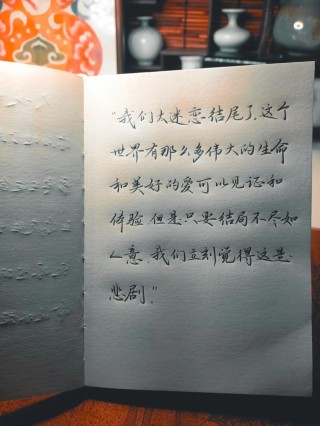 “我们太迷恋结尾了,这个
世界有那么多伟大的生命
和美好的爱可以见证和
体验,但是只要结局不尽如
人意,我们立刻觉得这是
悲剧。”